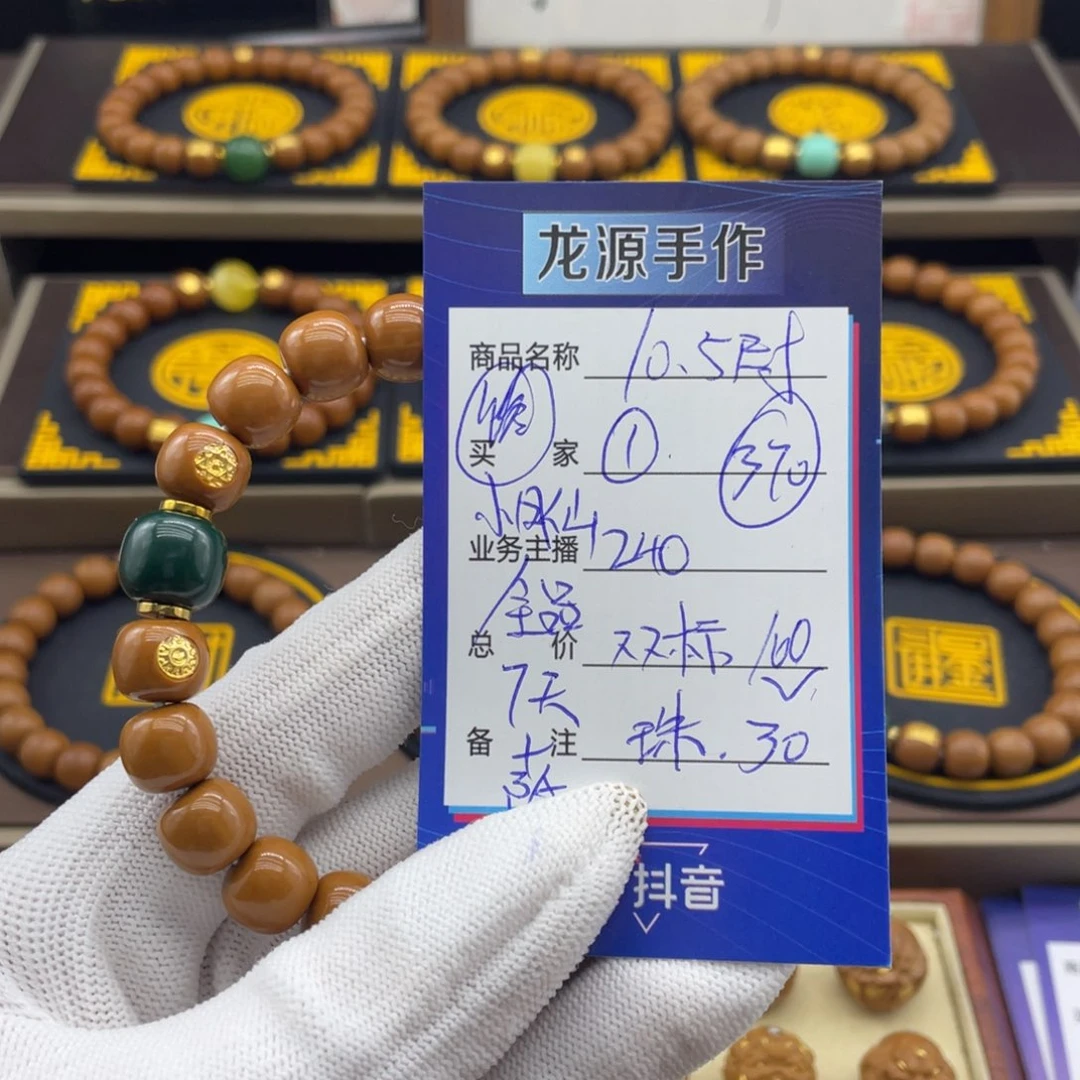 龙源手作
商品名称 10.5时
买家 ① 370
业务主播 240
全品
总价 双标 160
7天
备注 珠.30
抖音